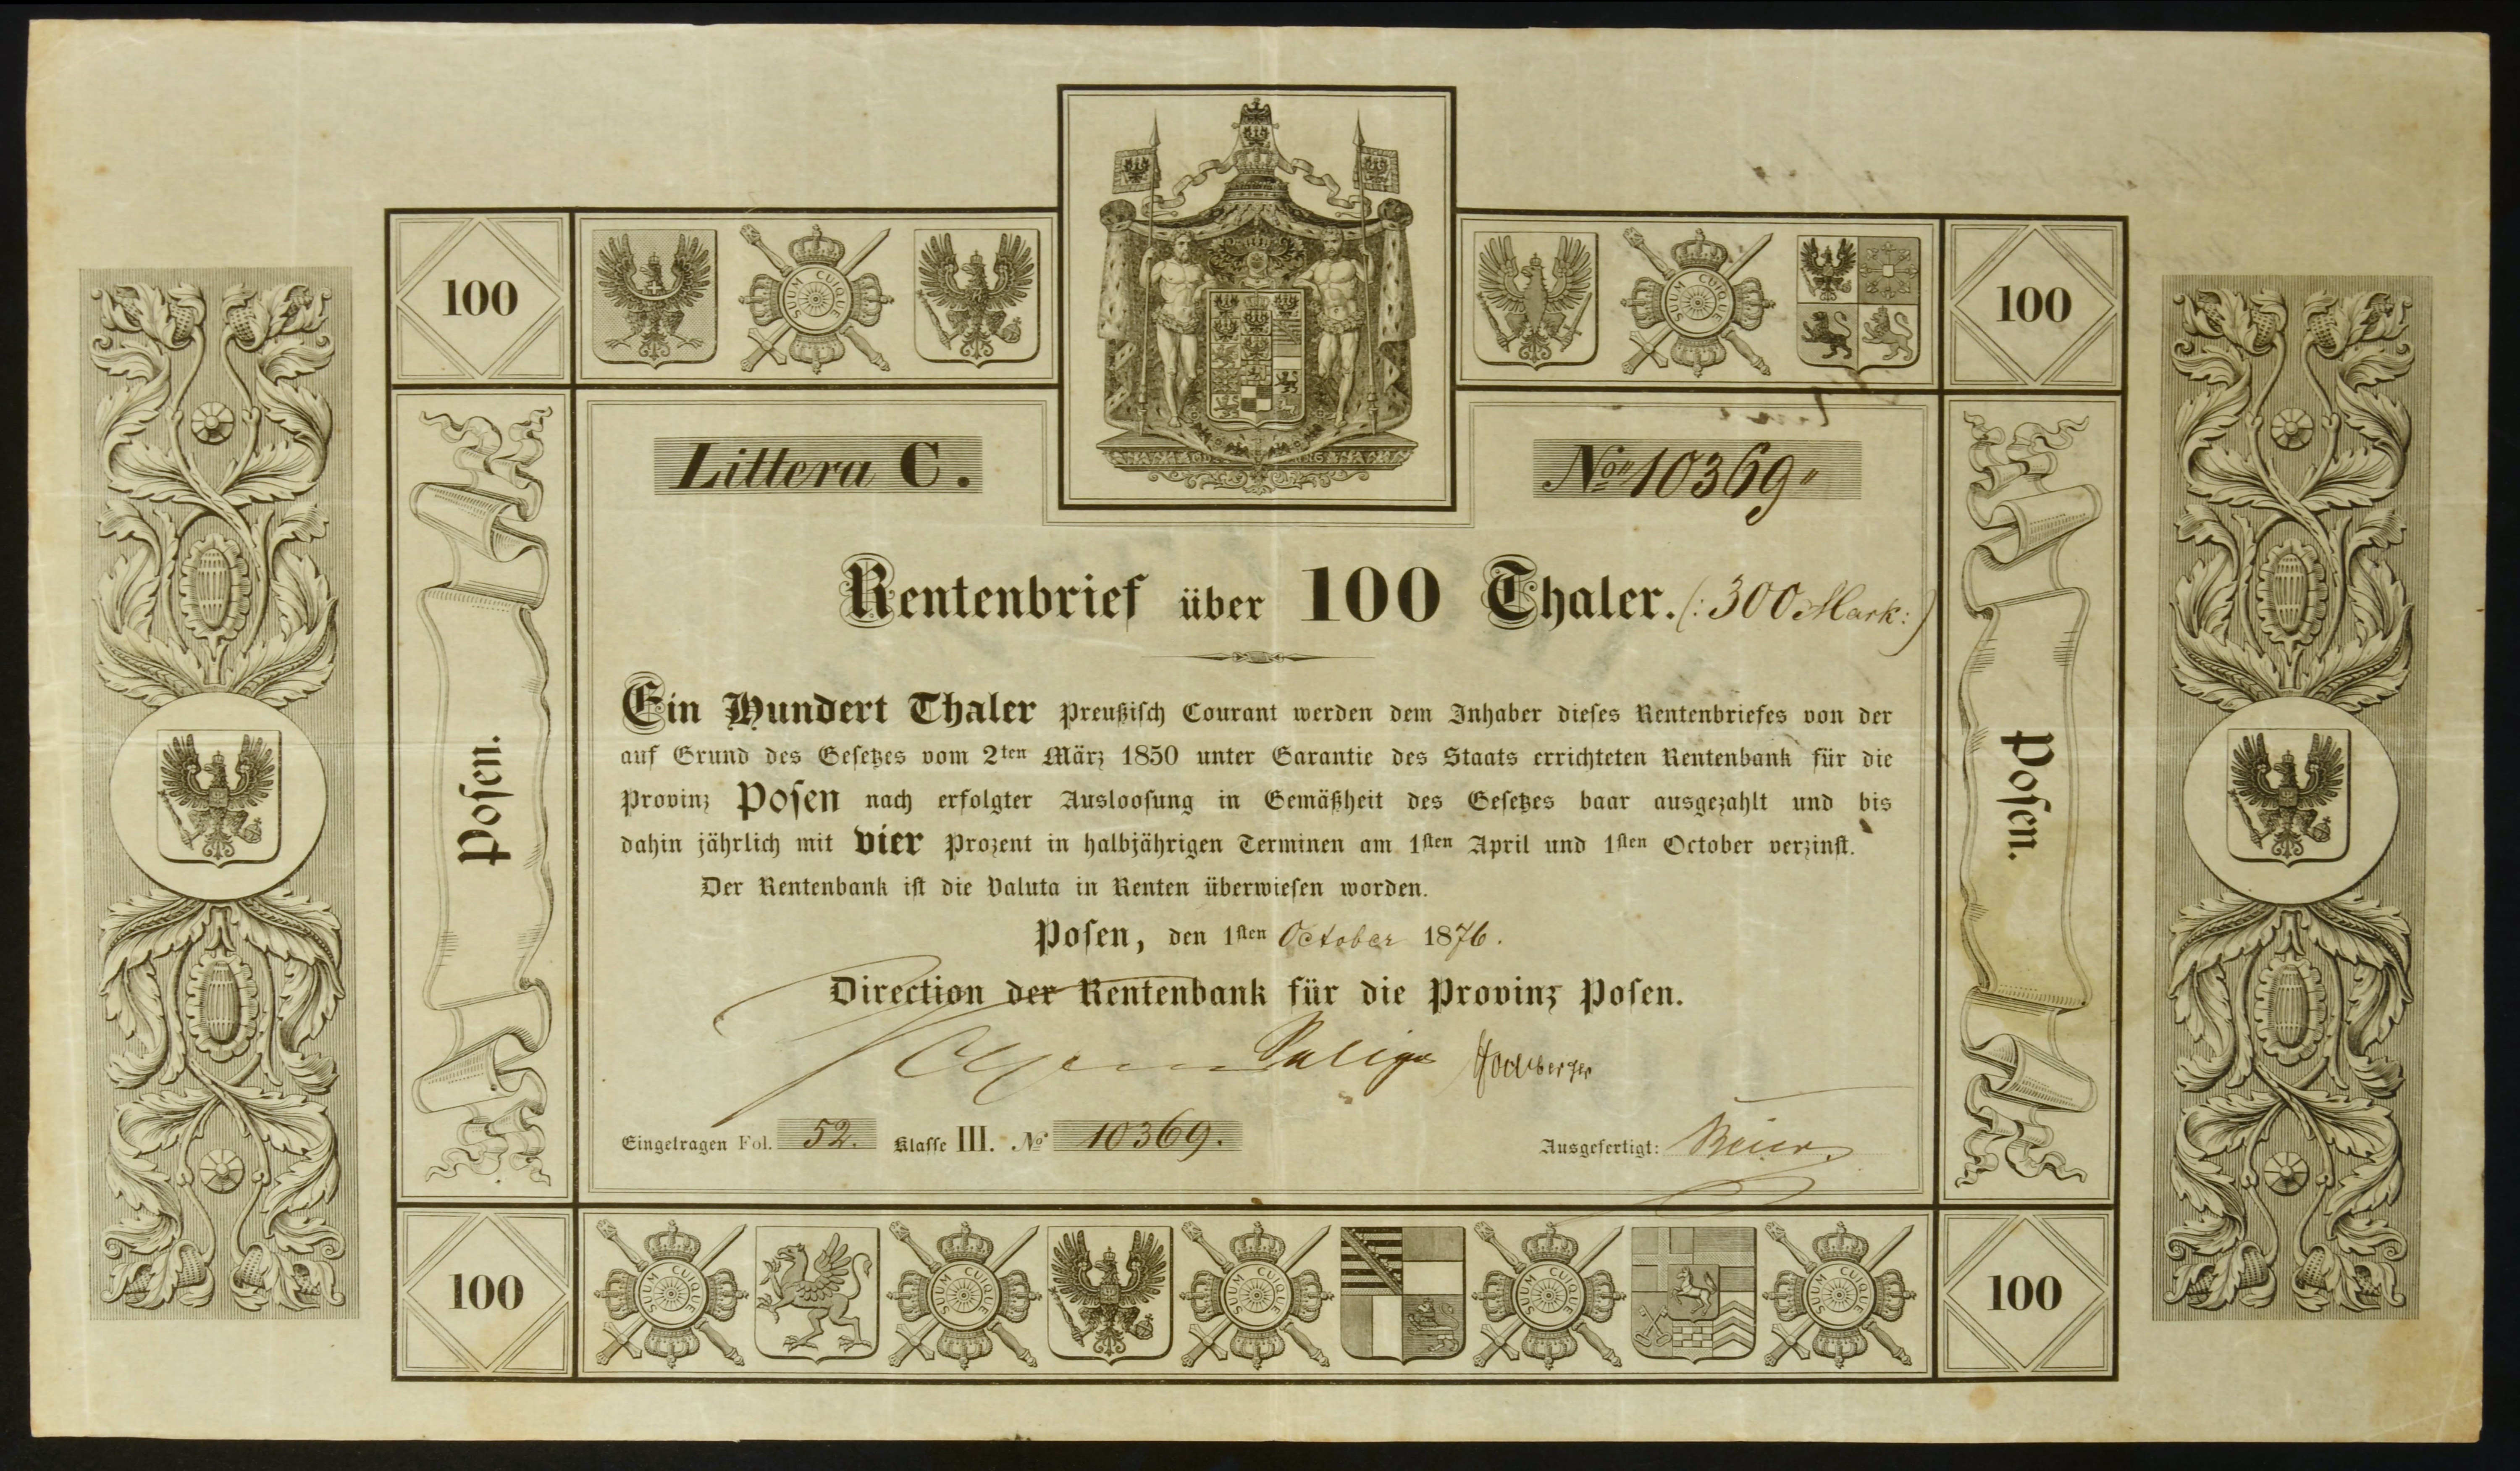 100
SUUM CUIQUE
SUUM CUIQUE
100
Littera C.
No "10369"
Rentenbrief über 100 Thaler. (: 300 Mark :)
Ein Hundert Thaler Preußiſch Courant werden dem Inhaber dieſes Rentenbriefes von der
auf Grund des Geſetzes vom 2ten März 1850 unter Garantie des Staats errichteten Rentenbank für die
Provinz Poſen nach erfolgter Auslooſung in Gemäßheit des Geſetzes baar ausgezahlt und bis
dahin jährlich mit vier Prozent in halbjährigen Terminen am 1ſten April und 1ſten October verzinſt.
Der Rentenbank iſt die Valuta in Renten überwieſen worden.
Poſen, den 1ſten October 1876.
Direction der Rentenbank für die Provinz Poſen.
Eingetragen Fol. 52. Klaſſe III. No 10369.
Ausgefertigt:
Poſen.
Poſen.
100
SUUM CUIQUE
SUUM CUIQUE
SUUM CUIQUE
SUUM CUIQUE
SUUM CUIQUE
100